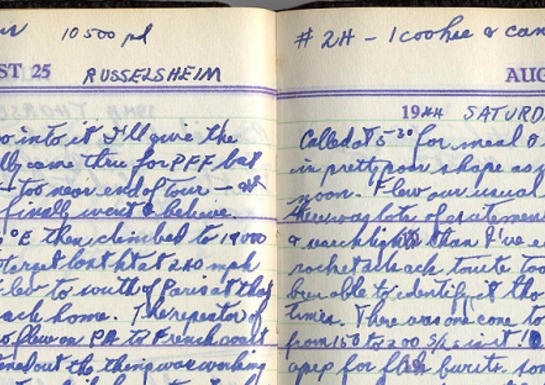 10500 pd
ST 25 RUSSELSHEIM
o into it I'll give the
lly came thru for PFF but
too near end of tour
finally went & believe.
° E then climbed to 19000
target lost ht at 240 mph
to south of Paris at that
ach home. The repeator of
o flew on PA to French coast
out the thing was working
# 2H - 1 cookie & can
AUG
1944 SATURD
Called at 5³⁰ for meal
in pretty poor shape as
noon. Flew our usual
There was lots of excitement
& searchlights than I've e
rocket attack route too
been able to identify it tho
times. There was one cone to
from 150 to 200 S/Ls in it
apex for flak bursts. som